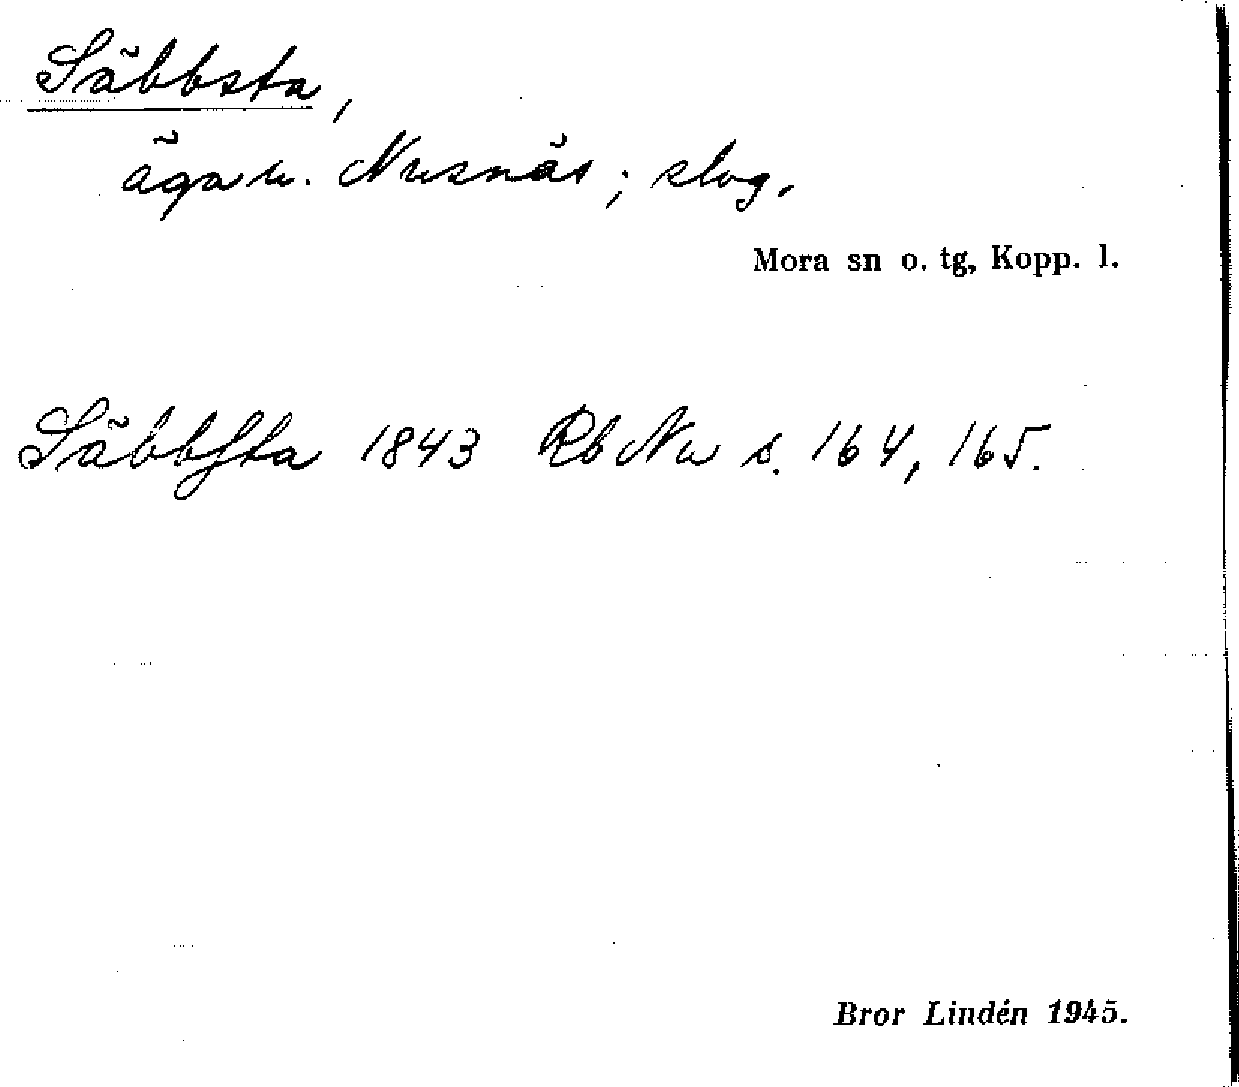 Säbbsta,
ägan. Nusnäs; slog.
Mora sn o. tg, Kopp. l.
Säbbſta 1843 Rb Nu s. 164, 165.
Bror Lindén 1945.